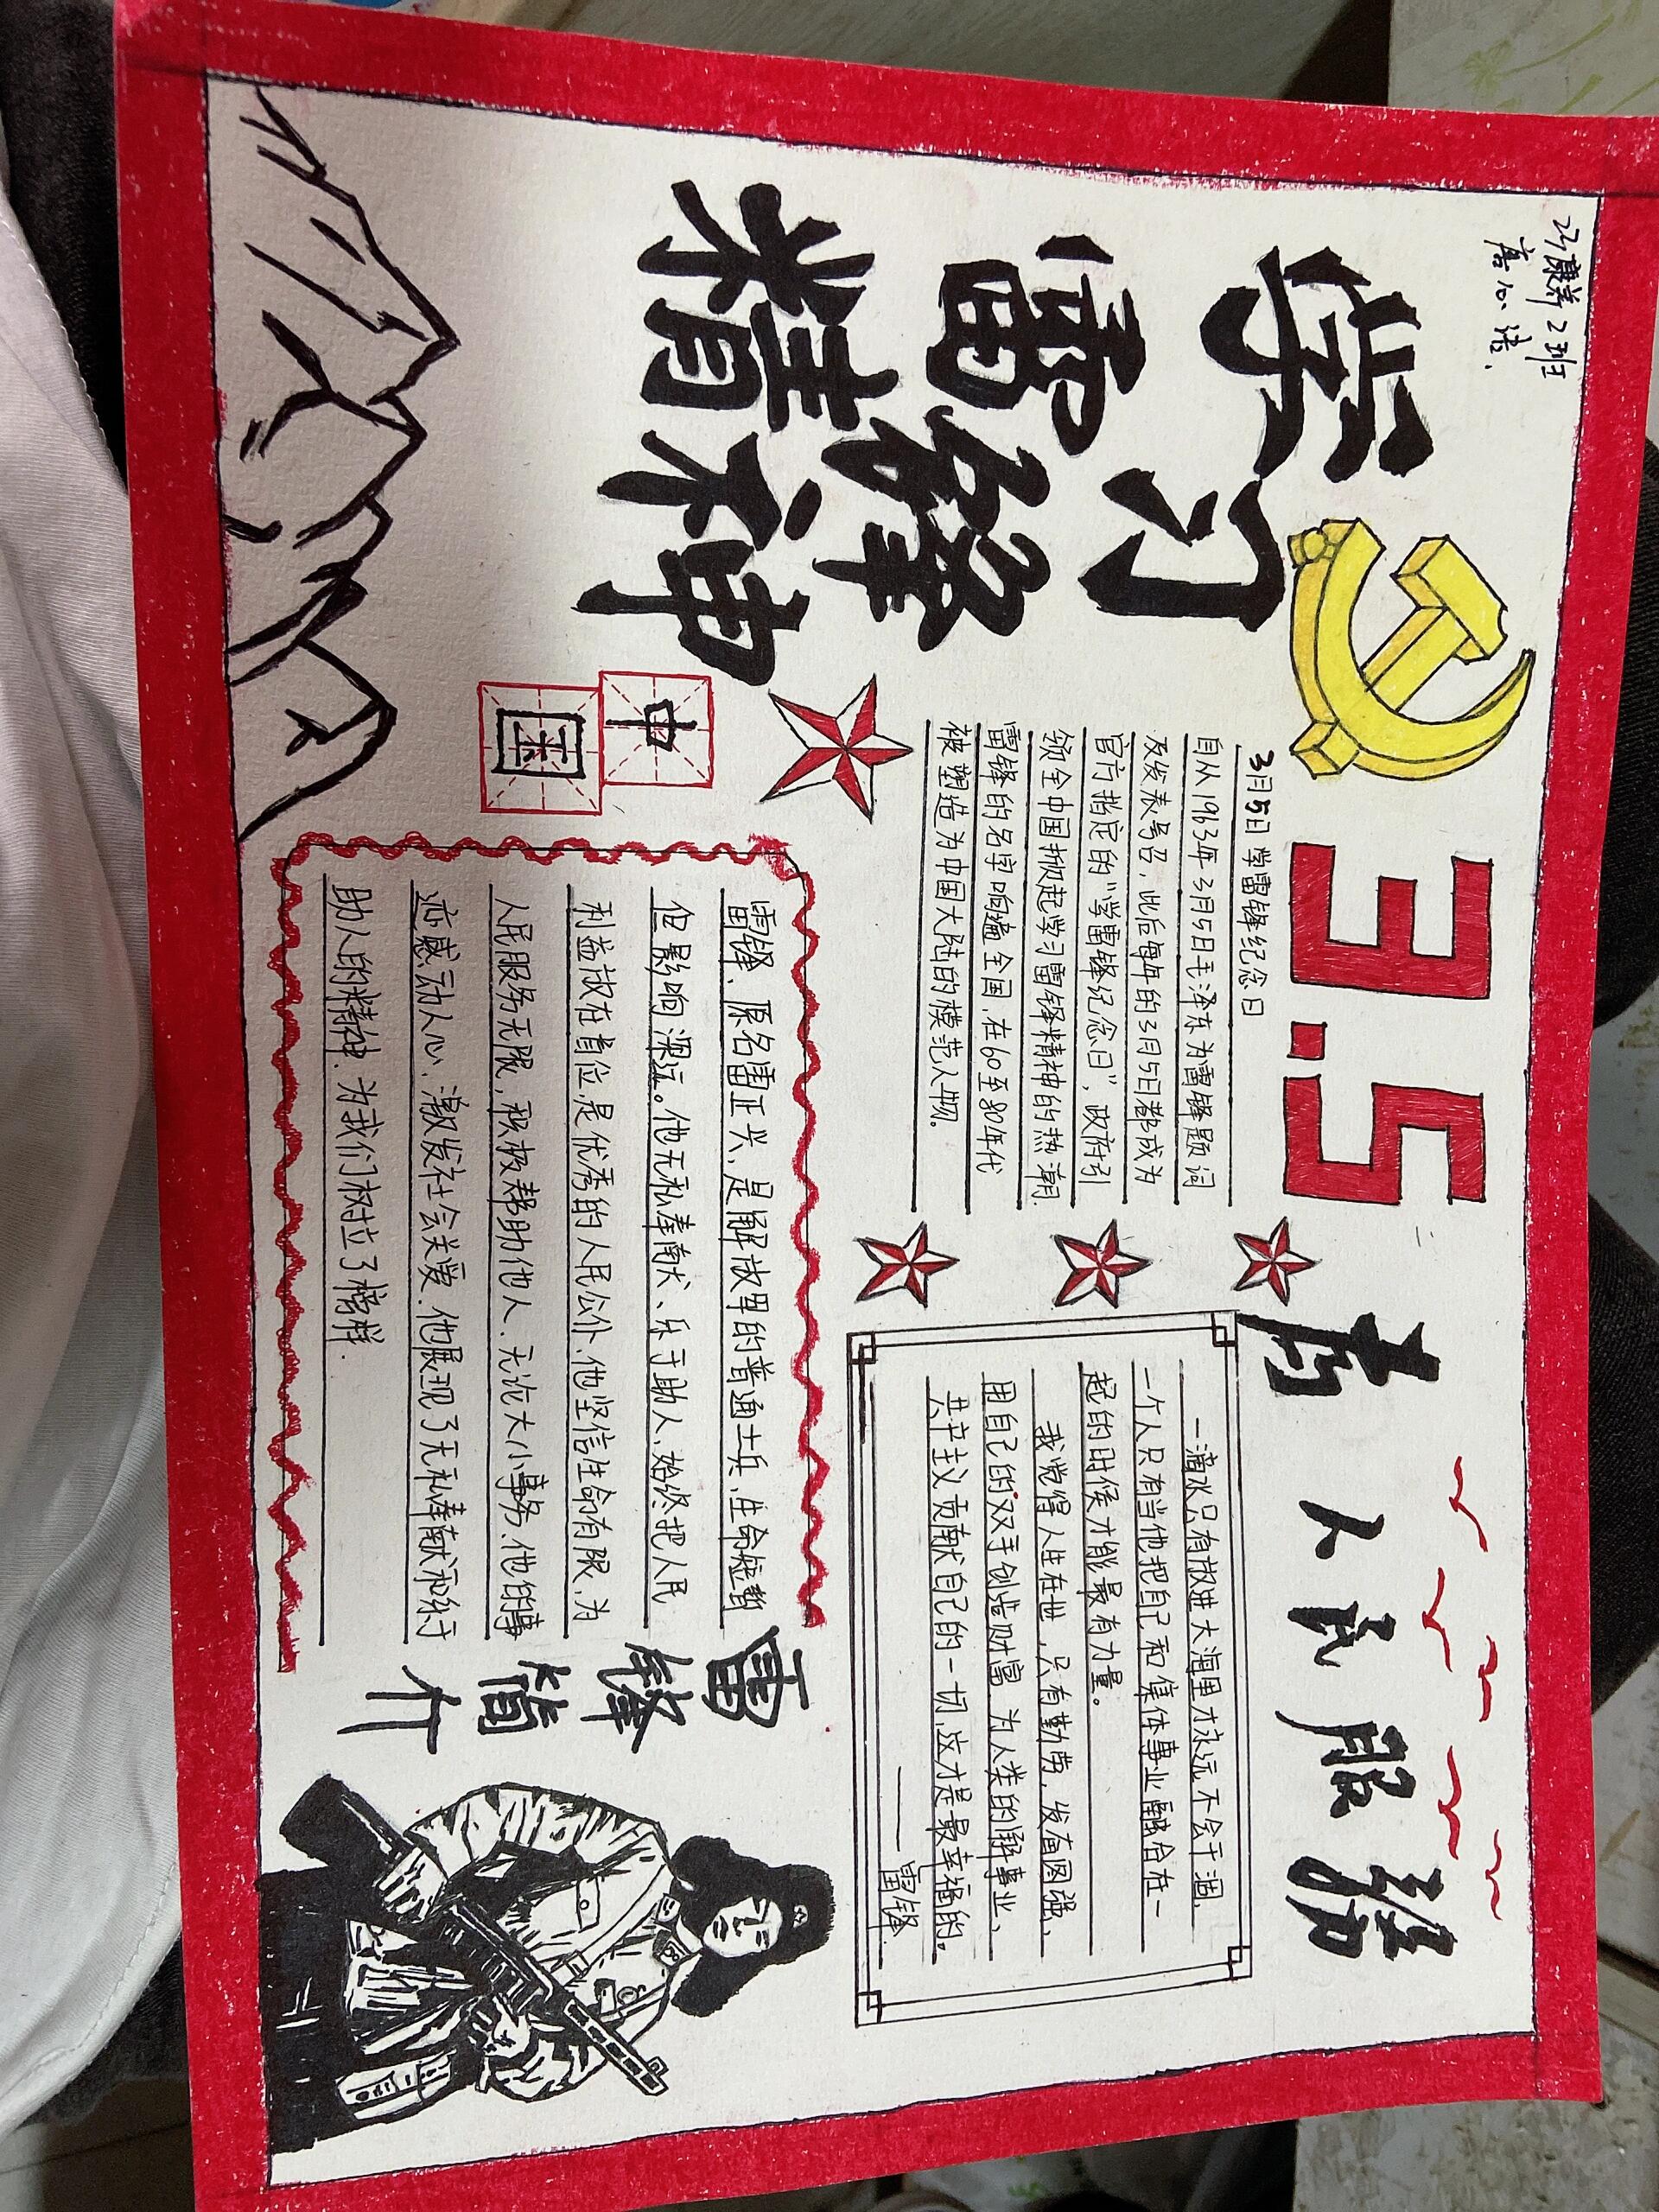 23康养2班
唐心洁.
学习
雷锋
精神
中
国
3.5
3月5日学雷锋纪念日
自从1963年3月5日毛泽东为雷锋题词
及发表号召,此后每年的3月5日都成为
官方指定的“学雷锋纪念日”,政府引
领全中国掀起学习雷锋精神的热潮.
雷锋的名字响遍全国,在60至80年代
被塑造为中国大陆的模范人物。
为人民服务
一滴水只有放进大海里才永远不会干涸,
一个人只有当他把自己和集体事业融合在一
起的时候才能最有力量。
我觉得人生在世,只有勤劳,发奋图强、
用自己的双手创造财富.为人类的解事业、
共产主义贡献自己的一切,这才是最幸福的。
——雷锋
雷锋、原名雷正兴,是解放军的普通士兵、生命短暂
但影响深远。他无私奉献、乐于助人,始终把人民
利益放在首位,是优秀的人民公仆、他坚信生命有限,为
人民服务无限,积极帮助他人、无论大小事务、他的事
迹感动人心、激发社会关爱.他展现了无私奉献和乐于
助人的精神、为我们树立了榜样.
雷锋简介